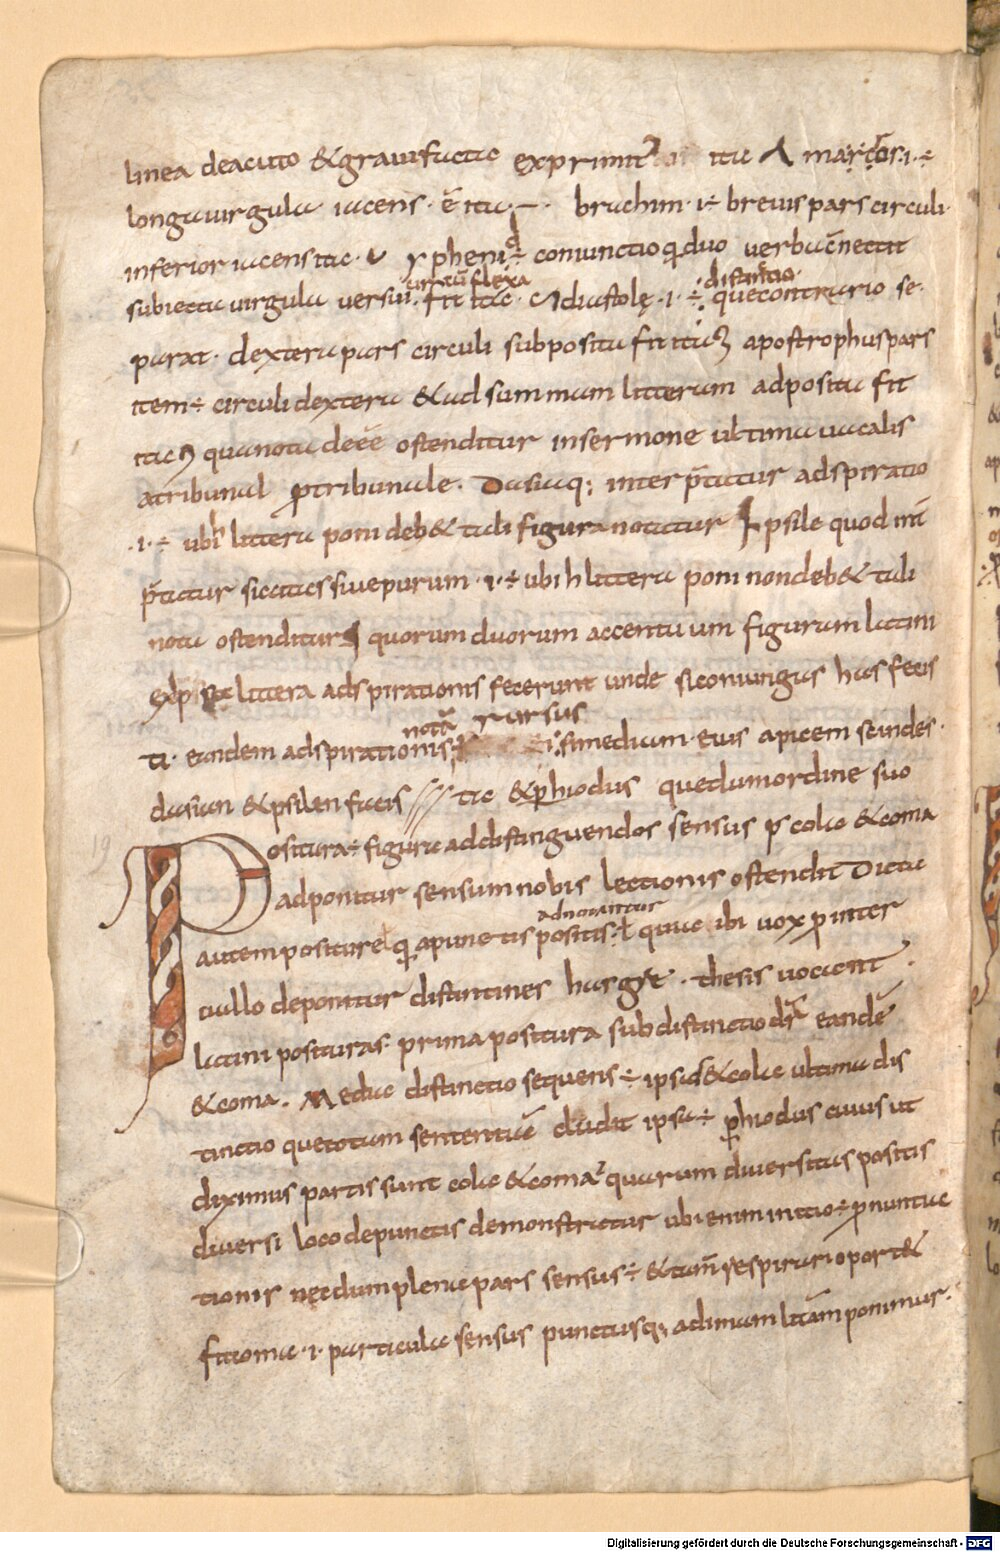 linea deacuto & graui factae exprimit̄ itu Λ marcos ·i· ÷
longa uirgula iacens · ē ita · — · brachim · i ÷ breuis pars circuli
inferior iacens itae · ᴗ yphen i d÷ coniunctio q duo uerba c̄nectit
circū flexa distantia
subiecta uirgula uersui fit itae · diastolę · i · ÷ que contrario se
parat · dextera pars circuli subposita fit ita apostrophus pars
item ÷ circuli dextera & ad summam litteram adposita fit
ita qua nota deee ostenditur in sermone ultima uocalis
atribunal ptribunale · Dasiaq; interp̄tatur adspiratio
· i · ÷ ubi h littera poni deb& tali figura notatur psile quod int̄
p̄tatur siccitas siue purum · i · ÷ ubi h littera poni non deb& tali
nota ostenditur quorum duorum accentuum figuram latini
littera adspirationis fecerunt unde si coniungas has feeis
notā rursus
ti · eandem adspirationis si medium eius apicem scindes ·
dasian & psilen facis /// tic & phiodus quedam ordine suo
Positura ÷ figura ad distinguendos sensus p colae & coma
adponitur sensum nobis lectionis ostendit Dicta
adnotantur
autem positure l q apunctis positis l quiae ibi uox p inter
uallo deponitur distantines has gre · thesis uocant ·
latini posituras prima positura subdistinctio dr̄ eandē
& coma · Mediae distinctio sequens ÷ ipsa & colae ultima dis
tinctio que totam sententiā cludit ipsa ÷ phiodus cuius ut
diximus partis sunt colae & coma quarum diuersitas positis
diuersi loco depunctis demonstratur ubi enim initio ÷ pnuntiae
tionis necdum plenae pars sensus ÷ & tam̄ respirari oport&
fit comae · i · particula sensus punctusq; ad imam litā ponimus ·
Digitalisierung gefördert durch die Deutsche Forschungsgemeinschaft - DFG